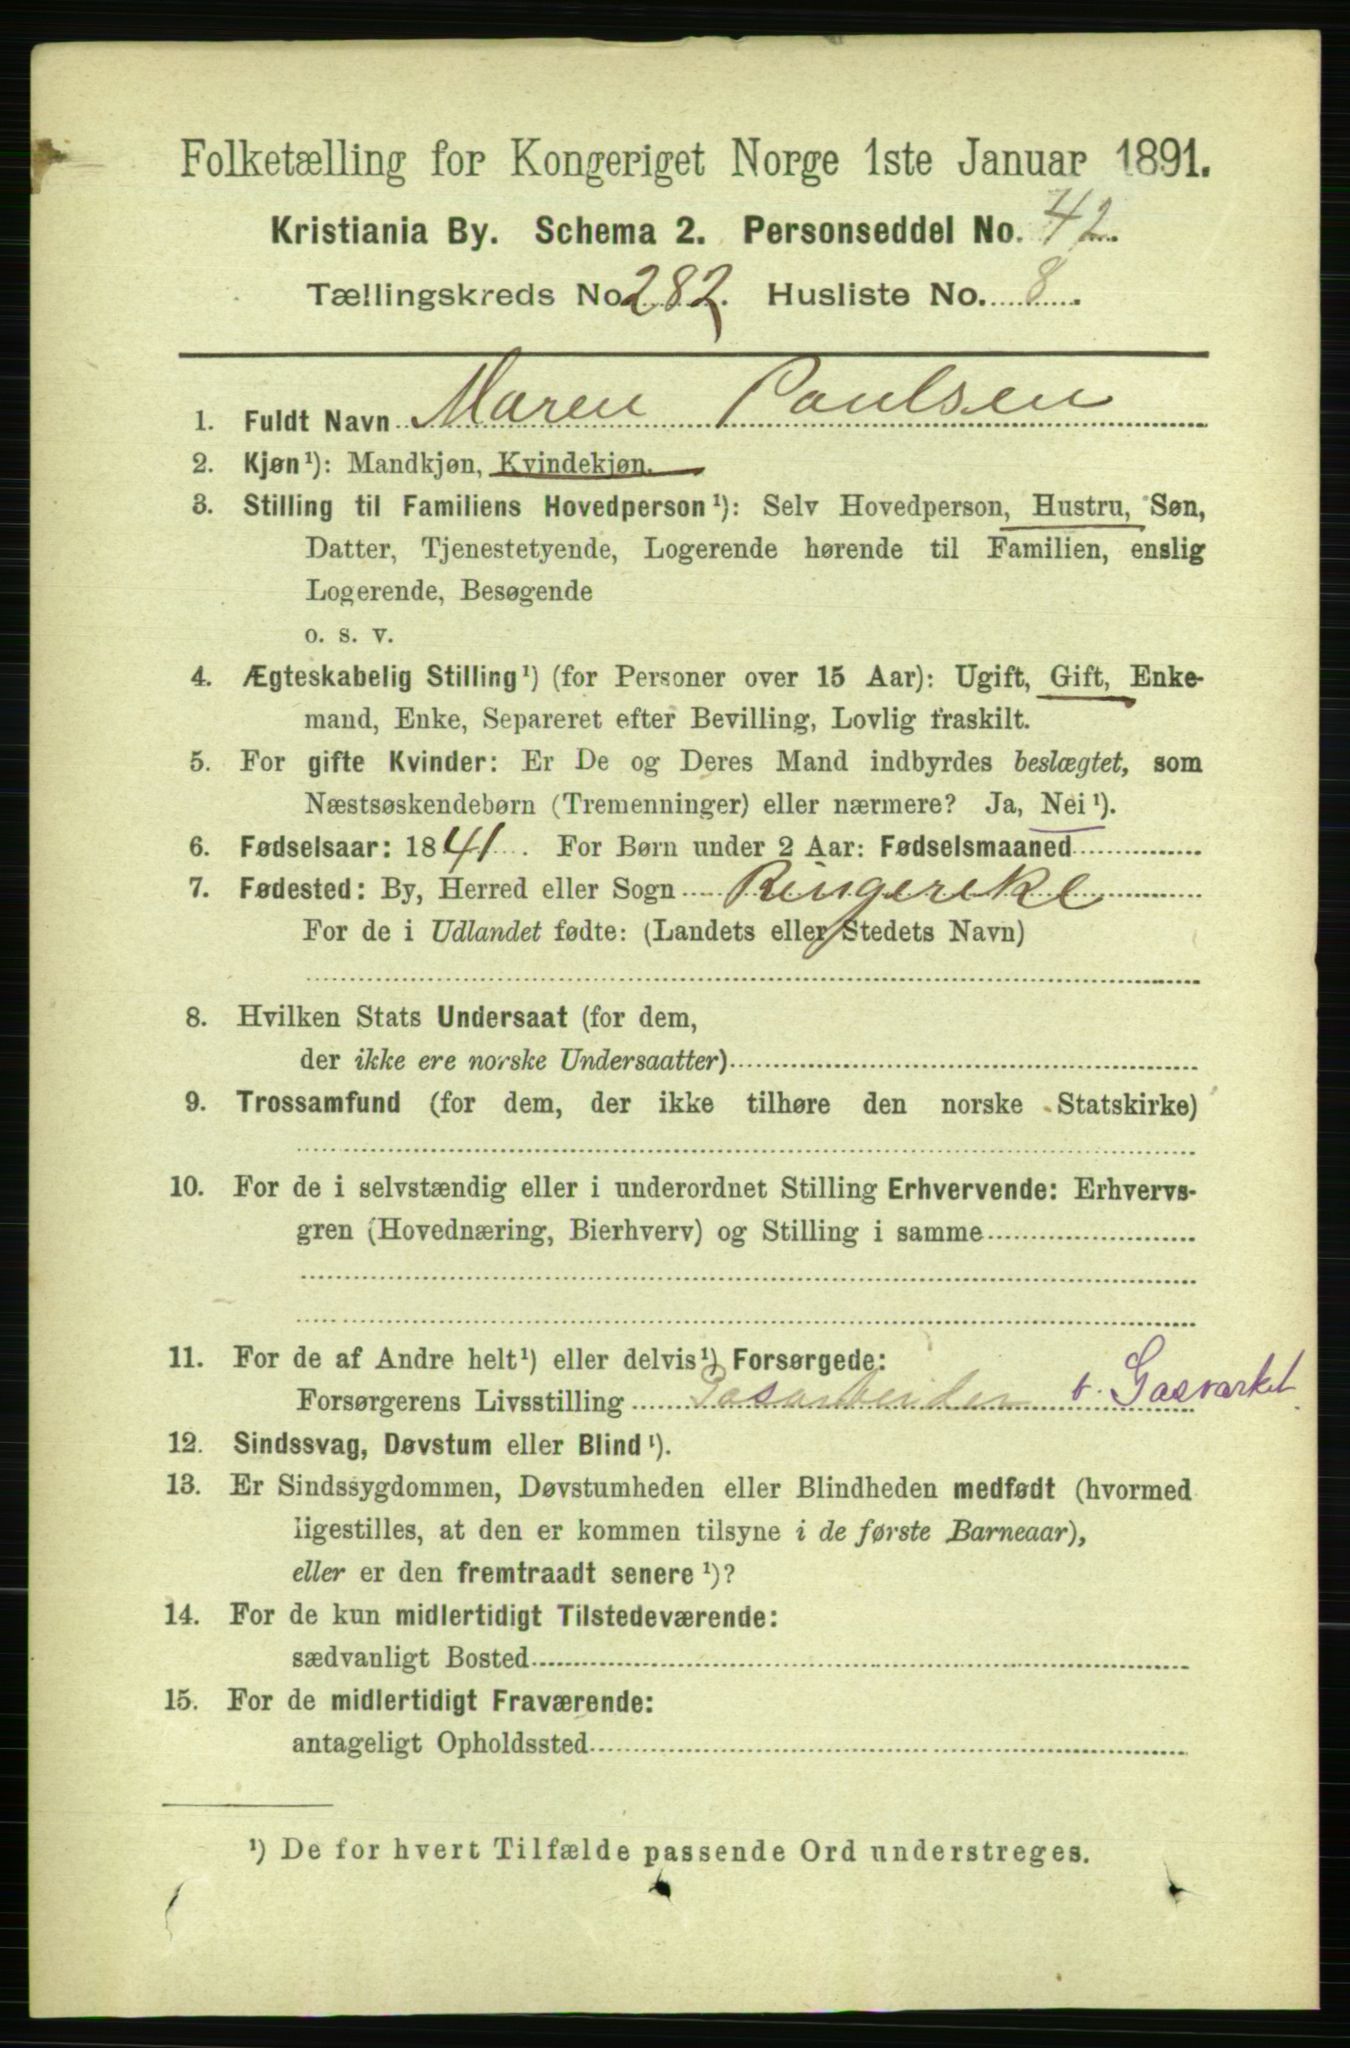 Folketælling for Kongeriget Norge 1ste Januar 1891.
Kristiania By. Schema 2. Personseddel No. 42.
Tællingskreds No. 282. Husliste No. 8.
1. Fuldt Navn Maren Paulsen
2. Kjøn¹): Mandkjøn, Kvindekjøn.
3. Stilling til Familiens Hovedperson¹): Selv Hovedperson, Hustru, Søn,
Datter, Tjenestetyende, Logerende hørende til Familien, enslig
Logerende, Besøgende
o. s. v.
4. Ægteskabelig Stilling¹) (for Personer over 15 Aar): Ugift, Gift, Enke-
mand, Enke, Separeret efter Bevilling, Lovlig fraskilt.
5. For gifte Kvinder: Er De og Deres Mand indbyrdes beslægtet, som
Næstsøskendebørn (Tremenninger) eller nærmere? Ja, Nei¹).
6. Fødselsaar: 1841. For Børn under 2 Aar: Fødselsmaaned
7. Fødested: By, Herred eller Sogn Ringerike
For de i Udlandet fødte: (Landets eller Stedets Navn)
8. Hvilken Stats Undersaat (for dem,
der ikke ere norske Undersaatter)
9. Trossamfund (for dem, der ikke tilhøre den norske Statskirke)
10. For de i selvstændig eller i underordnet Stilling Erhvervende: Erhvervs-
gren (Hovednæring, Bierhverv) og Stilling i samme
11. For de af Andre helt¹) eller delvis¹) Forsørgede:
Forsørgerens Livsstilling Gasarbeider v. Gasværket.
12. Sindssvag, Døvstum eller Blind¹).
13. Er Sindssygdommen, Døvstumheden eller Blindheden medfødt (hvormed
ligestilles, at den er kommen tilsyne i de første Barneaar),
eller er den fremtraadt senere¹)?
14. For de kun midlertidigt Tilstedeværende:
sædvanligt Bosted
15. For de midlertidigt Fraværende:
antageligt Opholdssted
¹) De for hvert Tilfælde passende Ord understreges.